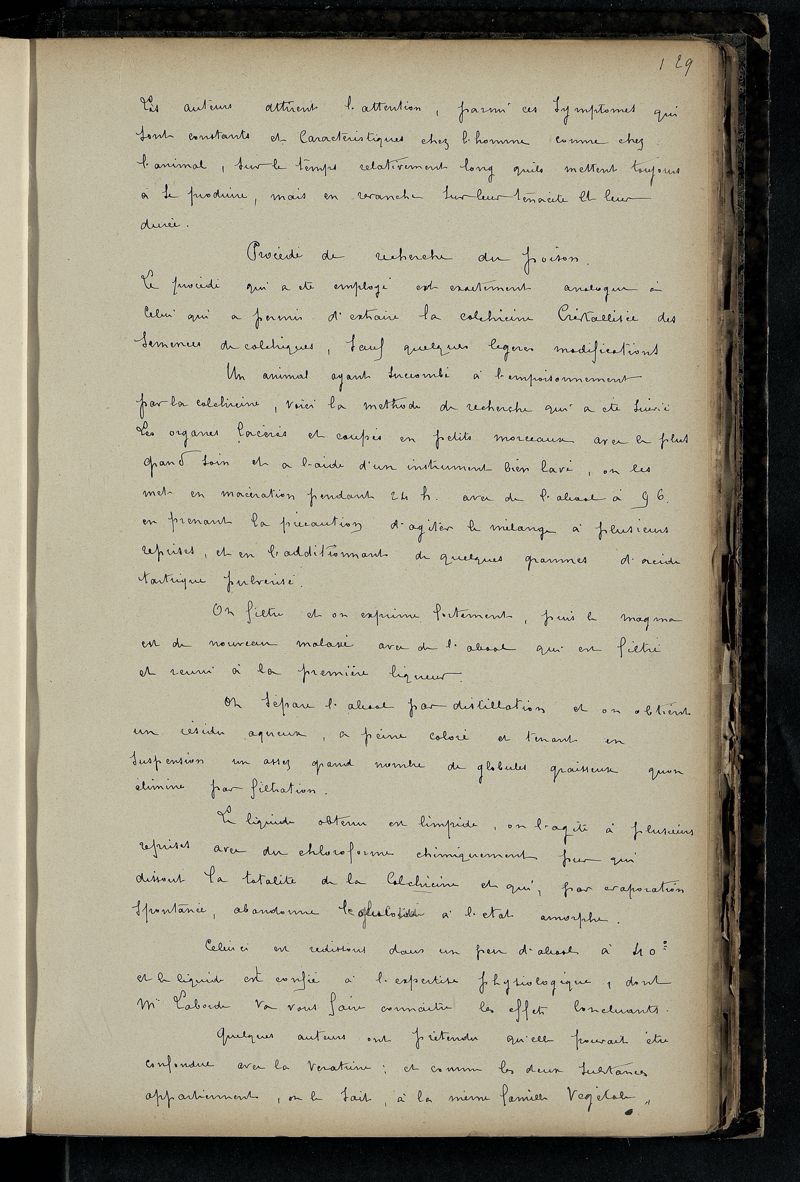 129
Les auteurs attirent l'attention, parmi ces symptomes qui
sont constants et caractéristiques chez l'homme comme chez
l'animal, sur le temps relativement long qu'ils mettent toujours
à se produire, mais en revanche sur leur ténacité et leur
durée.
Procédé de recherche du poison.
Le procédé qui a été employé est exactement analogue à
celui qui a permis d'extraire la colchicine cristallisée des
semences de colchiques, sauf quelques légères modifications
Un animal ayant succombé à l'empoisonnement
par la colchicine, voici la méthode de recherche qui a été suivie
Les organes lacérés et coupés en petits morceaux avec le plus
grand soin et a l'aide d'un instrument bien lavé, on les
met en macération pendant 24 h. avec de l'alcool à 96.
en prenant la précaution d'agiter le mélange à plusieurs
reprises, et en l'additionnant de quelques grammes d'acide
tartrique pulverisé.
On filtre et on exprime fortement, puis le magma
est de nouveau malaxé avec de l'alcool qui est filtré
et réuni à la première liqueur.
On sépare l'alcool par distillation et on obtient
un résidu aqueux, a peine coloré et tenant en
suspension un assez grand nombre de globules graisseux quon
élimine par filtration.
Le liquide obtenu est limpide, on l'agite à plusieurs
reprises avec du chloroforme chimiquement pur qui
dissout la totalité de la colchicine et qui, par évaporation
spontanée, abandonne à l'état amorphe.
Celui ci est redissout dans un peu d'alcool à 40°
et le liquide est confié à l'expertise physiologique, dont
Mr Laborde va vous faire connaitre les effets concluants.
Quelques auteurs ont prétendu qu'elle pouvait être
confondue avec la vératrine; et comme les deux substances
appartiennent, on le sait, à la même famille végétale,